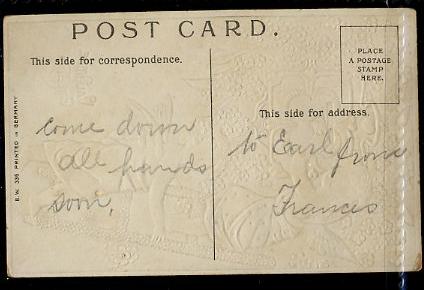 POST CARD.
This side for correspondence.
PLACE
A POSTAGE
STAMP
HERE.
This side for address.
E.W. 335 PRINTED IN GERMANY
come down
all hands
soon,
to Earl from
Frances